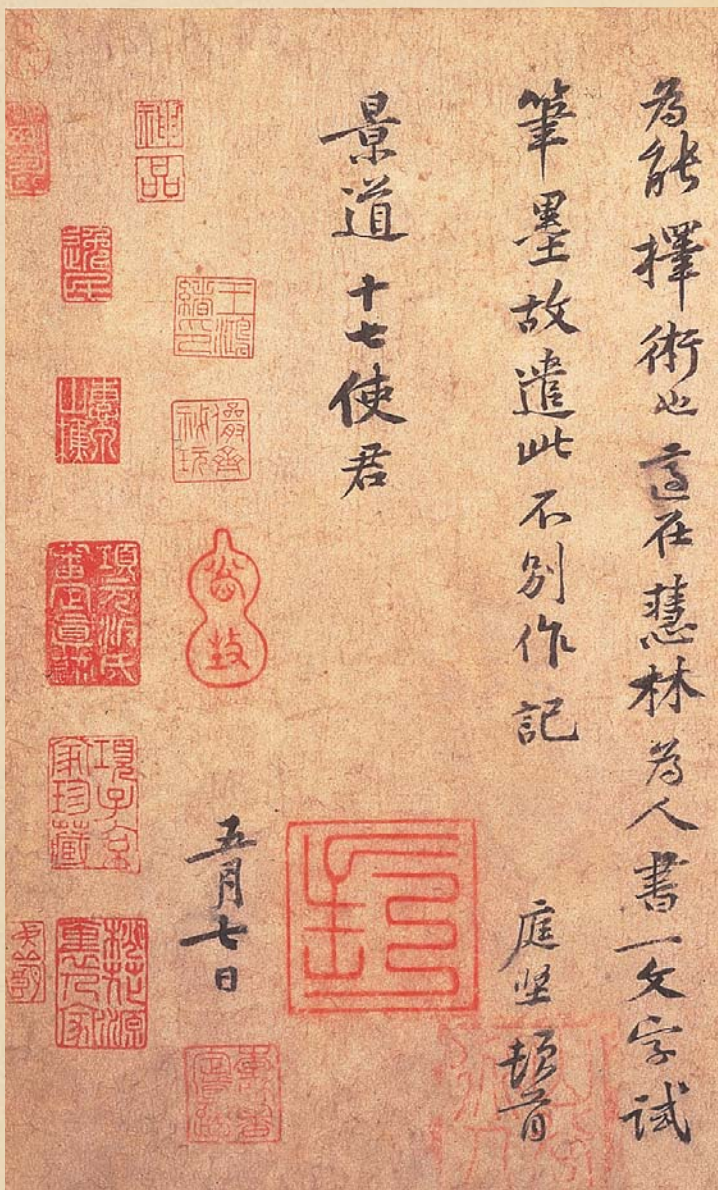 為能擇術也適在慧林為人書一文字試
筆墨故遣此不別作記
庭堅頓首
景道十七使君
五月七日
神品
王鴻緒印
儼齋秘玩
逸民
項元汴氏審定真跡
項子京家珍藏
桃花源裏人家